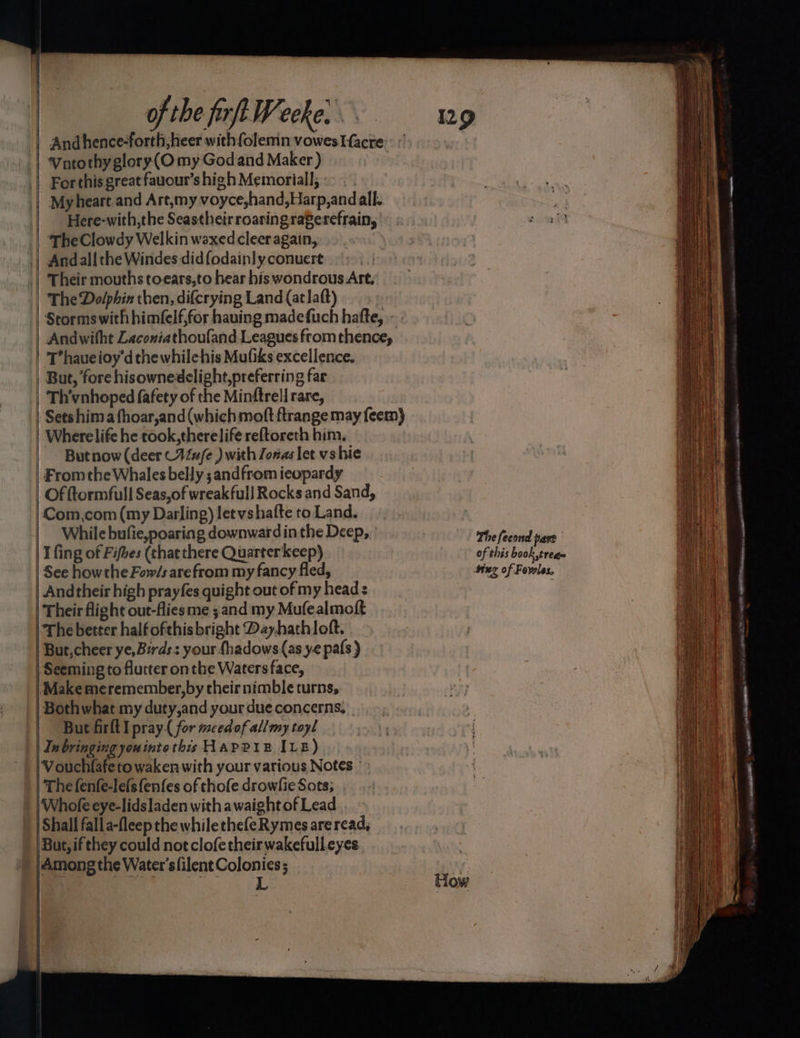 of the firſt Weeke. 129
And hence-forth, heer with ſolemn vowes I ſacre
Vnto thy glory (O my God and Maker)
For this great fauour's high Memoriall,
My heart and Art, my voyce, hand, Harp, and all.
Here-with, the Seas their roaring rage refrain,
The Clowdy Welkin waxed cleer again,
And all the Windes did ſodainly conuert
Their mouths to ears, to hear his wondrous Art.
The Dolphin then, diſcrying Land (at laſt)
Storms with himſelf, for hauing made ſuch haſte,
And wiſht Laconia thouſand Leagues from thence,
T'haue ioy'd the while his Muſiks excellence.
But, 'fore his owne delight, preferring far
Th'vnhoped ſafety of the Minſtrell rare,
Sets him a ſhoar, and (which moſt ſtrange may ſeem)
Where life he took, there life reſtoreth him.
But now (deer Muſe) with Ionas let vs hie
From the Whales belly; and from ieopardy
Of ſtormfull Seas, of wreakfull Rocks and Sand,
Com, com (my Darling) let vs haſte to Land.
While buſie, poaring downward in the Deep,
I ſing of Fiſhes (that there Quarter keep)
See how the Fowls are from my fancy fled,
And their high prayſes quight out of my head:
Their flight out-flies me; and my Muſe almoſt
The better half of this bright Day hath loſt.
But, cheer ye, Birds: your ſhadows (as ye paſs)
Seeming to flutter on the Waters face,
Make me remember, by their nimble turns,
Both what my duty, and your due concerns.
But firſt I pray (for meed of all my toyl
In bringing you into this HAPPIE ILE)
Vouchſafe to waken with your various Notes
The ſenſe-leſs ſenſes of thoſe drowſie Sots,
Whoſe eye-lids laden with a waight of Lead
Shall fall a-ſleep the while theſe Rymes are read,
But, if they could not cloſe their wakefull eyes
Among the Water's ſilent Colonies;
L How
The ſecond part
of this book, trea-
ting of Fowles.